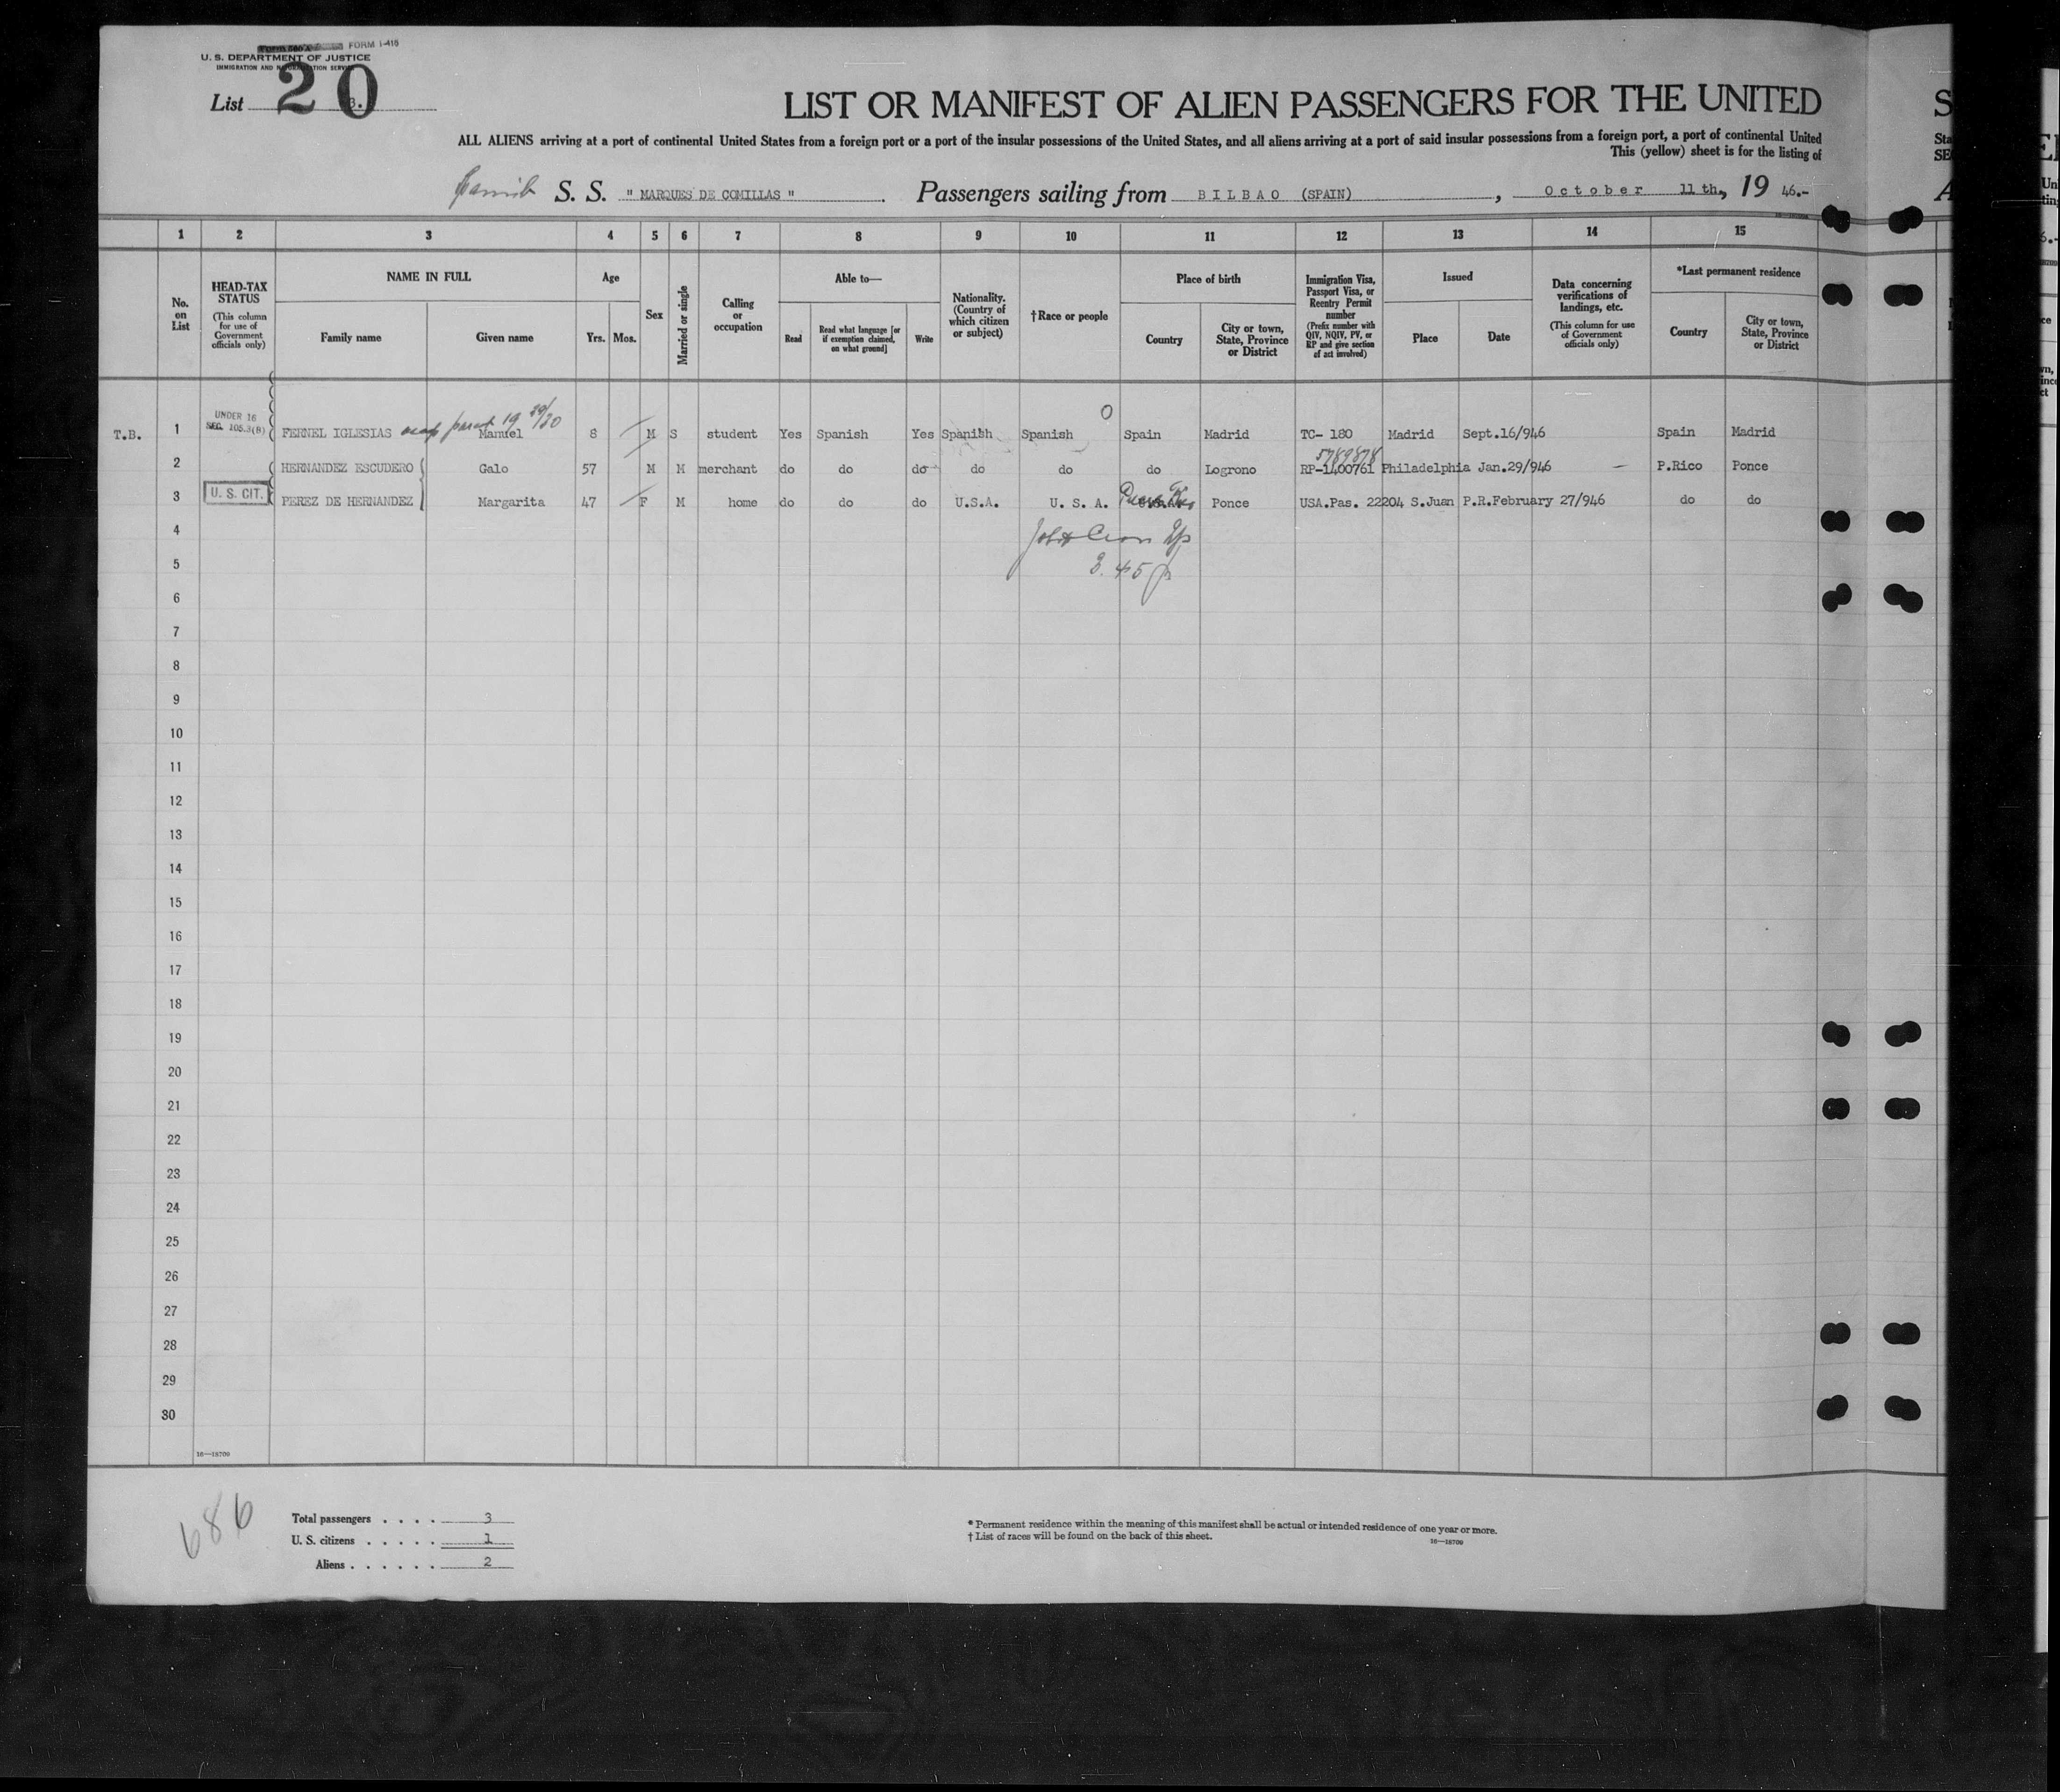 FORM I-415
U. S. DEPARTMENT OF JUSTICE
IMMIGRATION AND NATURALIZATION SERVICE
List 20
LIST OR MANIFEST OF ALIEN PASSENGERS FOR THE UNITED
ALL ALIENS arriving at a port of continental United States from a foreign port or a port of the insular possessions of the United States, and all aliens arriving at a port of said insular possessions from a foreign port, a port of continental United
This (yellow) sheet is for the listing of
S. S. " MARQUES DE COMILLAS " . Passengers sailing from BILBAO (SPAIN) , October 11 th., 19 46.-
1 2 3 4 5 6 7 8 9 10 11 12 13 14 15
No. on List
HEAD-TAX STATUS
(This column for use of Government officials only)
NAME IN FULL
Family name
Given name
Age
Yrs. Mos.
Sex
Married or single
Calling or occupation
Able to—
Read
Read what language [or if exemption claimed, on what ground]
Write
Nationality. (Country of which citizen or subject)
†Race or people
Place of birth
Country
City or town, State, Province or District
Immigration Visa, Passport Visa, or Reentry Permit number
(Prefix number with QIV, NQIV, PV, or RP and give section of act involved)
Issued
Place
Date
Data concerning verifications of landings, etc.
(This column for use of Government officials only)
*Last permanent residence
Country
City or town, State, Province or District
UNDER 16
SEC. 105.3(B)
T.B. 1 FERNEL IGLESIAS Manuel 8 M S student Yes Spanish Yes Spanish Spanish Spain Madrid TC- 180 Madrid Sept.16/946 Spain Madrid
5789878
2 HERNANDEZ ESCUDERO Galo 57 M M merchant do do do do do do Logrono RP-1400761 Philadelphia Jan.29/946 — P.Rico Ponce
3 U. S. CIT. PEREZ DE HERNANDEZ Margarita 47 F M home do do do U.S.A. U. S. A. Ponce USA.Pas. 22204 S.Juan P.R.February 27/946 do do
4
5
3.45 p
6
7
8
9
10
11
12
13
14
15
16
17
18
19
20
21
22
23
24
25
26
27
28
29
30
16—18709
686
Total passengers . . . . 3
U. S. citizens . . . . . 1
Aliens . . . . . . 2
* Permanent residence within the meaning of this manifest shall be actual or intended residence of one year or more.
† List of races will be found on the back of this sheet.
16—18709